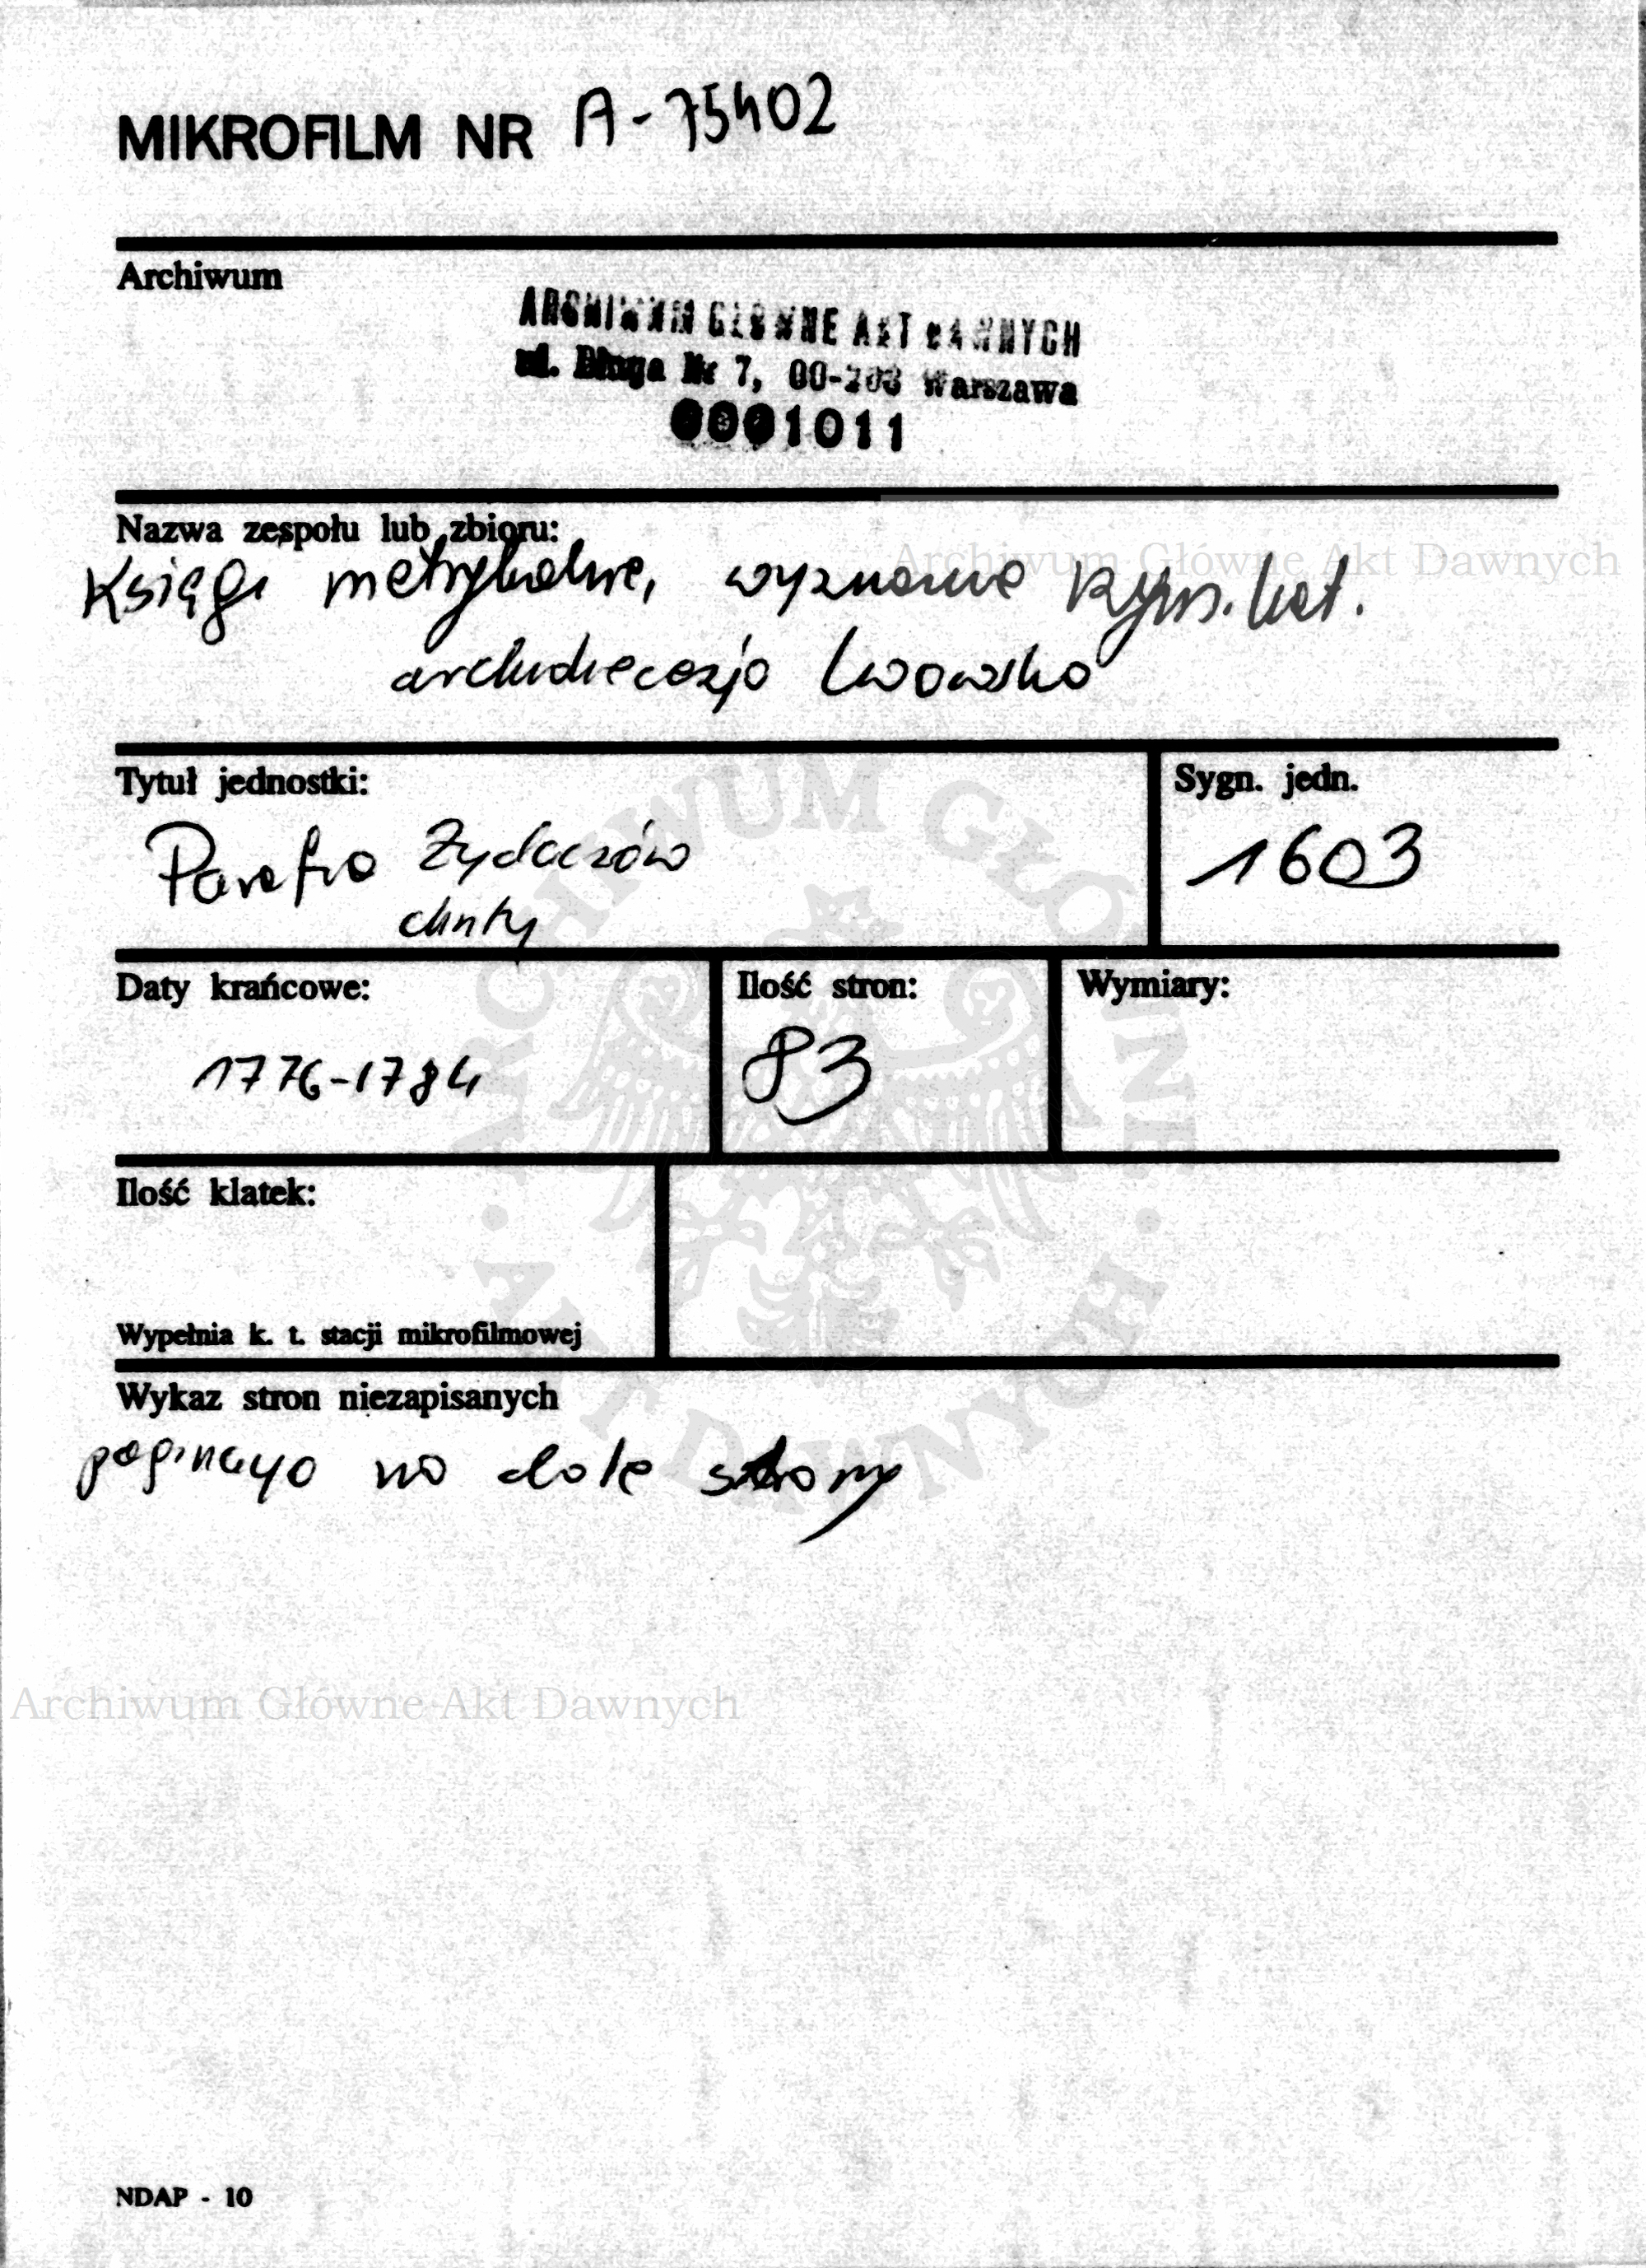 MIKROFILM NR A-75402
Archiwum
ARCHIWUM GŁÓWNE AKT DAWNYCH
ul. Długa Nr 7, 00-263 Warszawa
0001011
Nazwa zespołu lub zbioru:
Archiwum Główne Akt Dawnych
Księgi metrykalne, wyznanie rzym. kat.
archidiecezja lwowska
Tytuł jednostki:
Sygn. jedn.
Parafia Żydaczów
1603
chrzty
Daty krańcowe:
Ilość stron:
Wymiary:
1776-1784
83
Ilość klatek:
Wypełnia k. t. stacji mikrofilmowej
Wykaz stron niezapisanych
paginacja na dole strony
ARCHIWUM GŁÓWNE · AKT DAWNYCH ·
Archiwum Główne Akt Dawnych
NDAP - 10